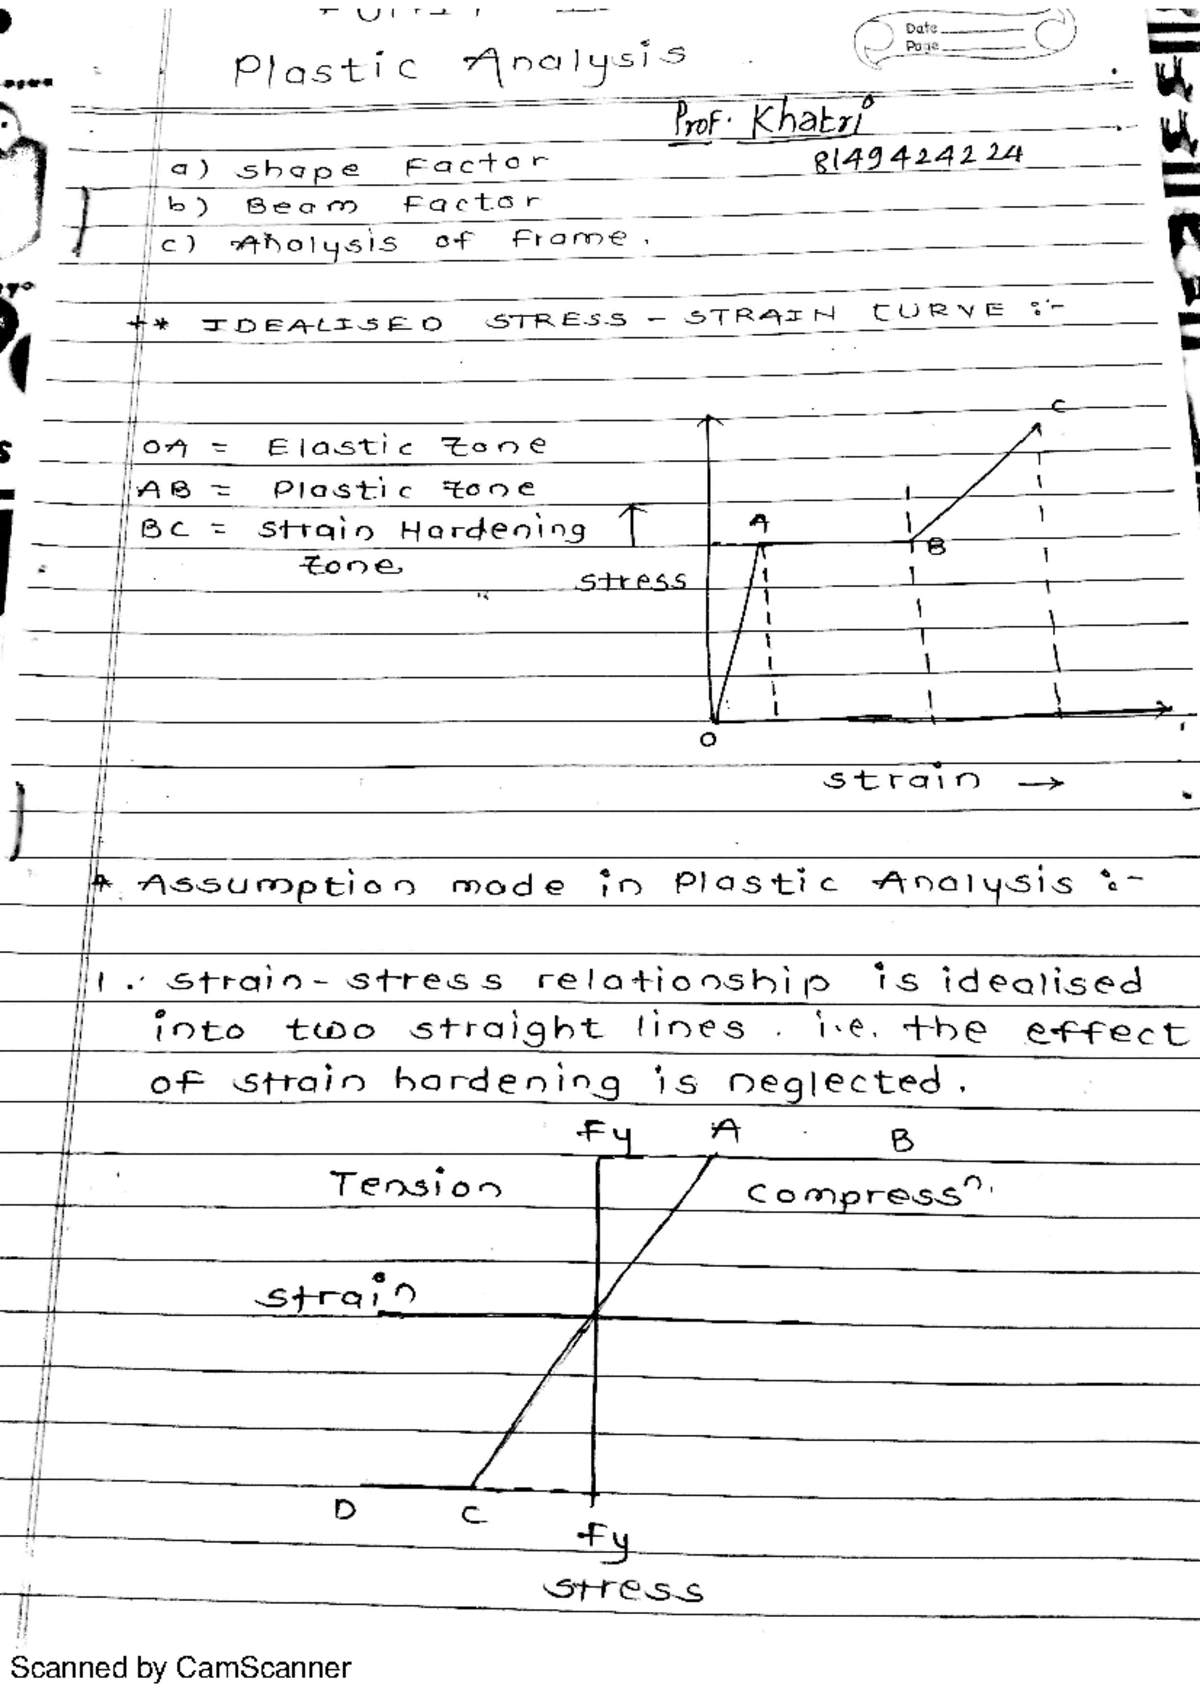 Plastic Analysis
Date
Page
Prof. Khatri
8149424224
a) Shape Factor
b) Beam Factor
c) Analysis of Frame.
** IDEALISED STRESS - STRAIN CURVE :-
OA = Elastic Zone
AB = Plastic Zone
BC = Strain Hardening
Zone
C
A
B
stress
O
strain →
* Assumption made in Plastic Analysis :-
1. strain-stress relationship is idealised
into two straight lines. i.e. the effect
of strain hardening is neglected.
Fy A B
Tension
compressn.
strain
D C
fy
stress
Scanned by CamScanner